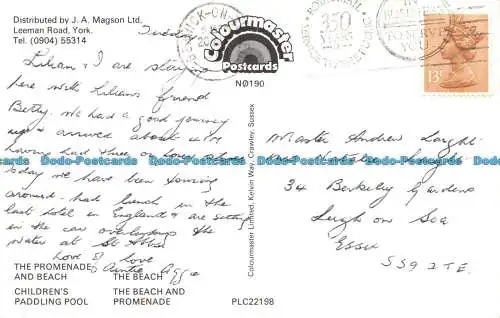 Distributed by J. A. Magson Ltd,
Leeman Road, York.
Tel. (0904) 55314
Tuesday
Colourmaster
Postcards
N0190
350
13P
Lilian & I are staying
here with Lilians friend
Betty. We had a good journey
up & arrived about
having had
today we have been touring
around. had lunch in the
last hotel in England & are sitting
in the car overlooking the
water at St Abbs.
Love & love
Auntie Aggie
Master Andrew
34 Berkeley Gardens
Leigh on Sea
Essex
SS9 2TE.
Colourmaster Limited, Kelvin Way, Crawley, Sussex
THE PROMENADE
AND BEACH
THE BEACH
CHILDREN'S
PADDLING POOL
THE BEACH AND
PROMENADE
PLC22198
Dodo-Postcards Dodo-Postcards Dodo-Postcards Dodo-Postcards Dodo-Postcards